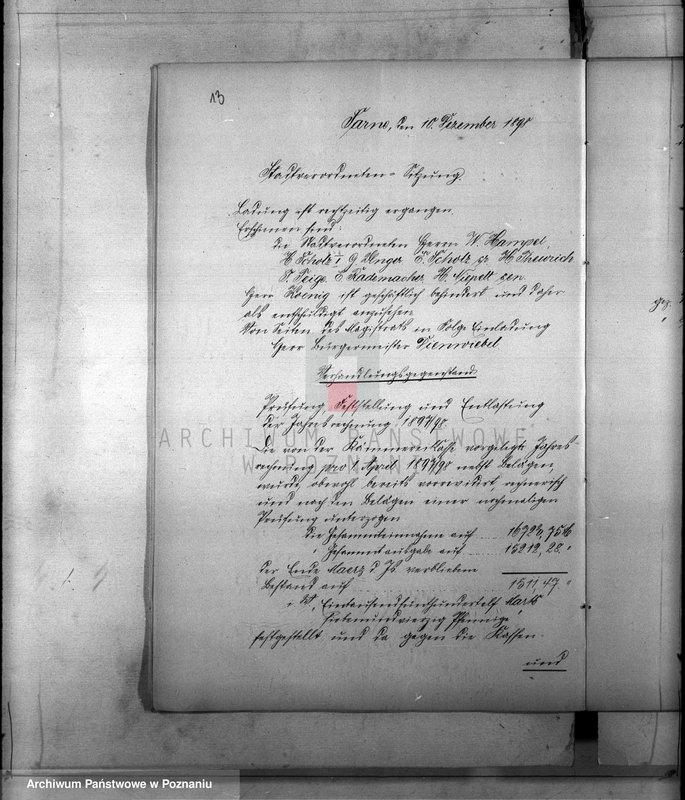 13
Sarne, den 10. Dezember 1898
Stadtverordneten-Sitzung.
Ladung ist rechtzeitig ergangen.
Erschienen sind:
die Stadtverordneten Herren W. Hampel,
H Scholz I, G Unger, E. Scholz sr. H Theurich
S. Feige E Rademacher, H. Siepelt sen.
Herr Koenig ist geschäftlich behindert und daher
als entschuldigt anzusehen.
Von Seiten des Magistrats in Folge Einladung
Herr Bürgermeister Dienwiebel
Verhandlungsgegenstand.
Prüfung, Feststellung und Entlastung
der Jahresrechnung 1897/98.
Die von der Kämmereikasse vorgelegte Jahres-
rechnung pro 1 April 1897/98 nebst Belägen,
wurde, obwohl bereits vorrevidirt, rechnerisch
und nach den Belägen einer nochmaligen
Prüfung unterzogen
die Gesammteinnahme auf 75
" Gesammtausgabe auf 15212, 28 "
der Ende Maerz d Js verbliebene
Bestand auf 1511 47 "
i W, Eintausendfünfhundertelf Mark
Siebenundvierzig Pfennige
festgestellt und da gegen die Kassen
und
ARCHIWUM PAŃSTWOWE
W POZNANIU
Archiwum Państwowe w Poznaniu